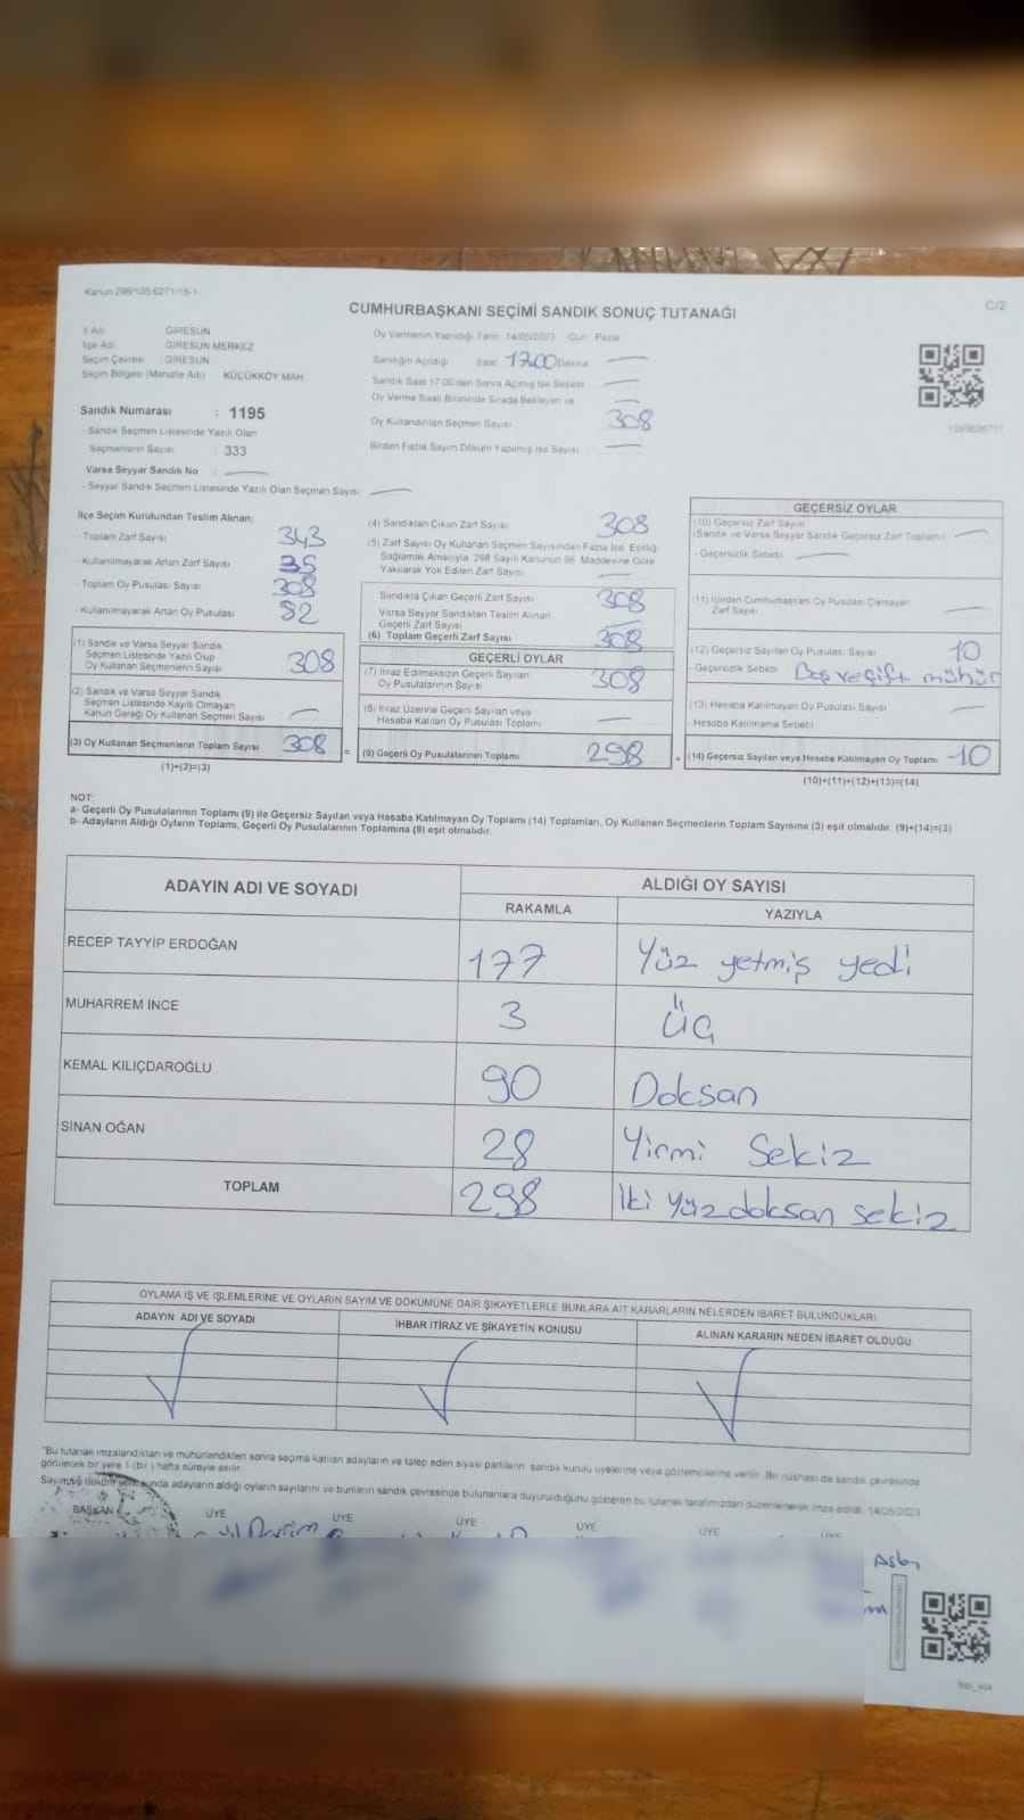 Kanun 298/105 6271/15-1
C/2
CUMHURBAŞKANI SEÇİMİ SANDIK SONUÇ TUTANAĞI
İl Adı GİRESUN
İlçe Adı GİRESUN MERKEZ
Seçim Çevresi GİRESUN
Seçim Bölgesi (Mahalle Adı) KÜÇÜKKÖY MAH.
Sandık Numarası : 1195
- Sandık Seçmen Listesinde Yazılı Olan
Seçmenlerin Sayısı : 333
Varsa Seyyar Sandık No
- Seyyar Sandık Seçmen Listesinde Yazılı Olan Seçmen Sayısı
Oy Vermenin Yapıldığı Tarih 14/05/2023 Gün: Pazar
Sandığın Açıldığı Saat 17.00 Dakika
Sandık Saat 17.00'den Sonra Açılmış İse Sebebi
Oy Verme Saati Bitiminde Sırada Bekleyen
Oy Kullandırılan Seçmen Sayısı 308
Birden Fazla Sayım Döküm Yapılmış İse Sayısı
İlçe Seçim Kurulundan Teslim Alınan;
- Toplam Zarf Sayısı 343
- Kullanılmayarak Artan Zarf Sayısı 35
- Toplam Oy Pusulası Sayısı
- Kullanılmayarak Artan Oy Pusulası
(1) Sandık ve Varsa Seyyar Sandık
Seçmen Listesinde Yazılı Olup
Oy Kullanan Seçmenlerin Sayısı 308
(2) Sandık ve Varsa Seyyar Sandık
Seçmen Listesinde Kayıtlı Olmayan
Kanun Gereği Oy Kullanan Seçmen Sayısı
(3) Oy Kullanan Seçmenlerin Toplam Sayısı 308
(1)+(2)=(3)
(4) Sandıktan Çıkan Zarf Sayısı 308
(5) Zarf Sayısı Oy Kullanan Seçmen Sayısından Fazla İse, Eşitliği
Sağlamak Amacıyla 298 Sayılı Kanunun 98. Maddesine Göre
Yakılarak Yok Edilen Zarf Sayısı
Sandıkta Çıkan Geçerli Zarf Sayısı 308
Varsa Seyyar Sandıktan Teslim Alınan
Geçerli Zarf Sayısı
(6) Toplam Geçerli Zarf Sayısı 308
GEÇERLİ OYLAR
(7) İtiraz Edilmeksizin Geçerli Sayılan
Oy Pusulalarının Sayısı 308
(8) İtiraz Üzerine Geçerli Sayılan veya
Hesaba Katılan Oy Pusulası Toplamı
(9) Geçerli Oy Pusulalarının Toplamı 298
GEÇERSİZ OYLAR
(10) Geçersiz Zarf Sayısı
(Sandık ve Varsa Seyyar Sandık Geçersiz Zarf Toplamı)
- Geçersizlik Sebebi
(11) İçinden Cumhurbaşkanı Oy Pusulası Çıkmayan
Zarf Sayısı
(12) Geçersiz Sayılan Oy Pusulası Sayısı 10
- Geçersizlik Sebebi Boş ve çift mühür
(13) Hesaba Katılmayan Oy Pusulası Sayısı
Hesaba Katılmama Sebebi
(14) Geçersiz Sayılan veya Hesaba Katılmayan Oy Toplamı 10
(10)+(11)+(12)+(13)=(14)
NOT:
a- Geçerli Oy Pusulalarının Toplamı (9) ile Geçersiz Sayılan veya Hesaba Katılmayan Oy Toplamı (14) Toplamları, Oy Kullanan Seçmenlerin Toplam Sayısına (3) eşit olmalıdır. (9)+(14)=(3)
b- Adayların Aldığı Oyların Toplamı, Geçerli Oy Pusulalarının Toplamına (9) eşit olmalıdır.
ADAYIN ADI VE SOYADI
ALDIĞI OY SAYISI
RAKAMLA YAZIYLA
RECEP TAYYİP ERDOĞAN 177 Yüz yetmiş yedi
MUHARREM İNCE 3 Üç
KEMAL KILIÇDAROĞLU 90 Doksan
SİNAN OĞAN 28 Yirmi Sekiz
TOPLAM 298 İki yüz doksan sekiz
OYLAMA İŞ VE İŞLEMLERİNE VE OYLARIN SAYIM VE DÖKÜMÜNE DAİR ŞİKAYETLERLE BUNLARA AİT KARARLARIN NELERDEN İBARET BULUNDUKLARI
ADAYIN ADI VE SOYADI İHBAR İTİRAZ VE ŞİKAYETİN KONUSU ALINAN KARARIN NEDEN İBARET OLDUĞU
"Bu tutanak imzalandıktan ve mühürlendikten sonra seçime katılan adayların ve talep eden siyasi partilerin sandık kurulu üyelerine veya gözlemcilerine verilir. Bir nüshası da sandık çevresinde
görülecek bir yere 1 (bir) hafta süreyle asılır.
adayların aldığı oyların sayılarını ve bunların sandık çevresinde bulunanlara duyurulduğunu gösteren bu tutanak tarafımızdan düzenlenerek imza edildi. 14/05/2023
BAŞKAN ÜYE ÜYE ÜYE ÜYE ÜYE